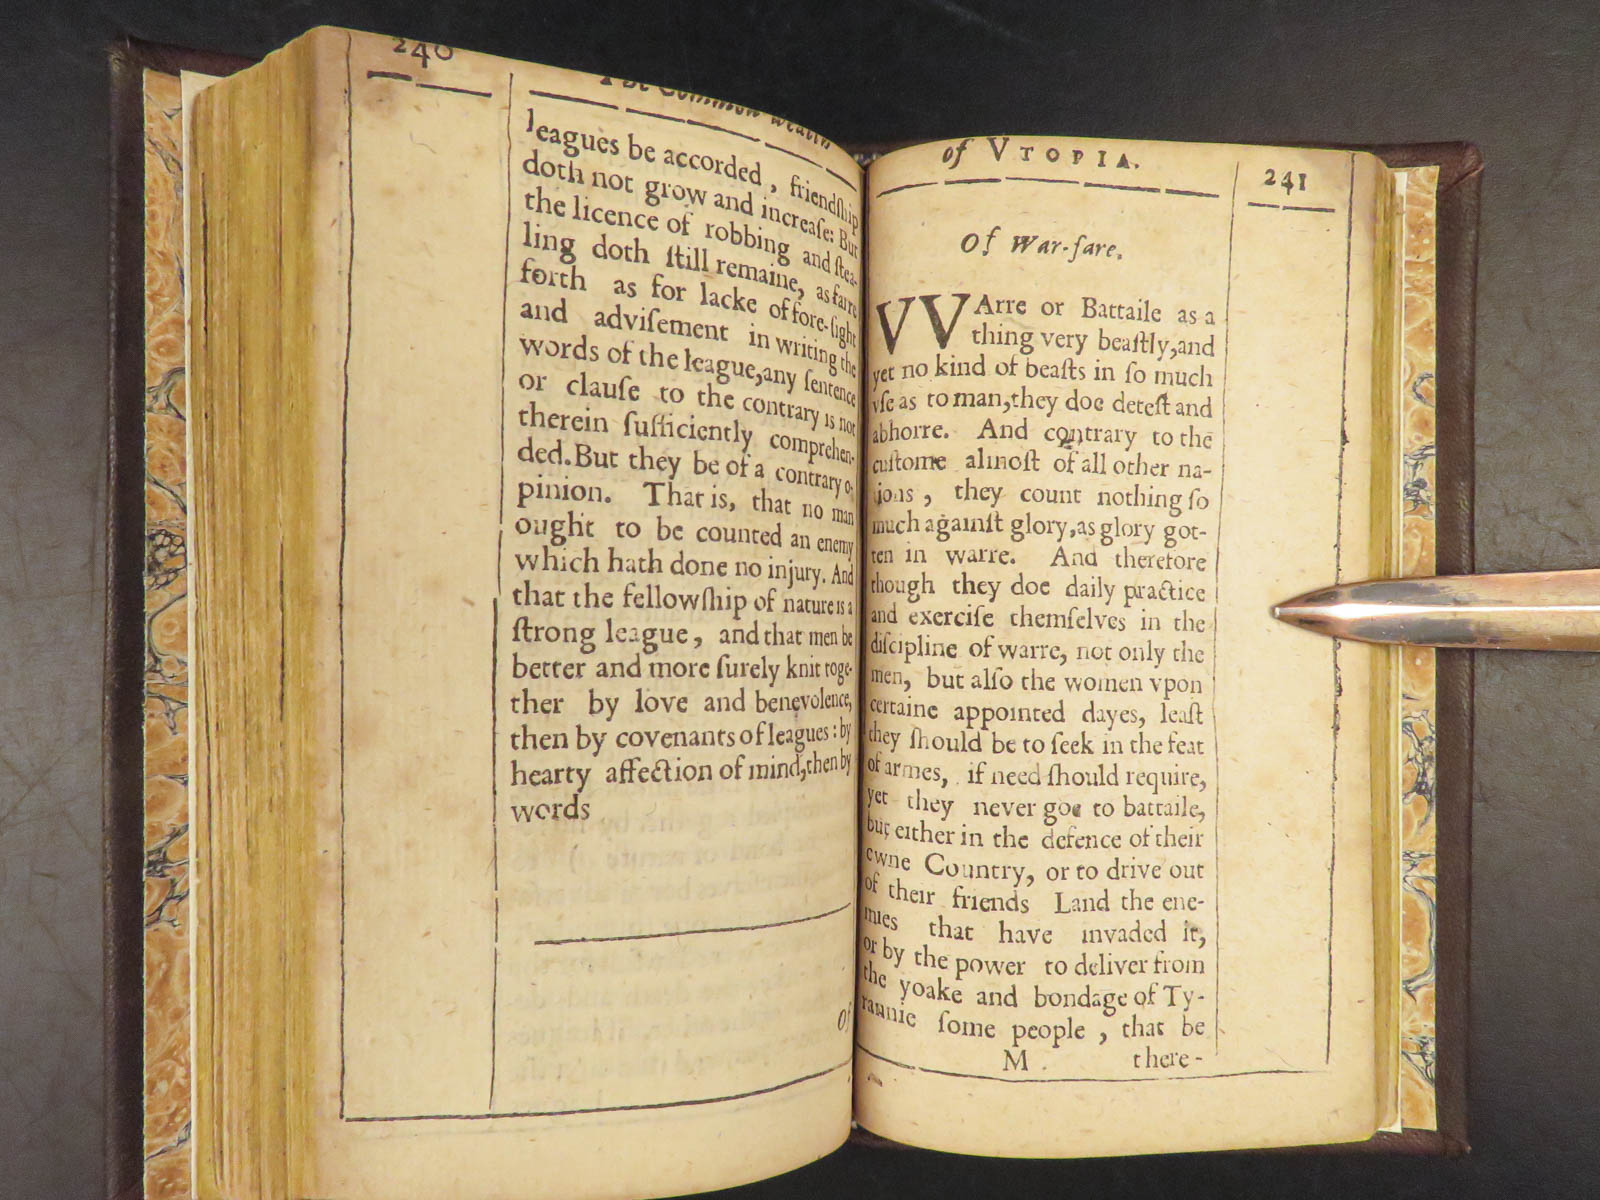 240
The Common wealth
leagues be accorded , friendſhip
doth not grow and increaſe: But
the licence of robbing and ſtea-
ling doth ſtill remaine, as farre
forth as for lacke of fore-ſight
and adviſement in writing the
words of the league,any ſentence
or clauſe to the contrary is not
therein ſufficiently comprehen-
ded.But they be of a contrary o-
pinion. That is, that no man
ought to be counted an enemy
which hath done no injury. And
that the fellowſhip of nature is a
ſtrong league, and that men be
better and more ſurely knit toge-
ther by love and benevolence,
then by covenants of leagues : by
hearty affection of mind,then by
words
Of
of VTOPIA.
241
Of War-fare.
VVArre or Battaile as a
thing very beaſtly,and
yet no kind of beaſts in ſo much
vſe as to man,they doe deteſt and
abhorre. And contrary to the
cuſtome almoſt of all other na-
tions , they count nothing ſo
much againſt glory,as glory got-
ten in warre. And therefore
though they doe daily practice
and exerciſe themſelves in the
diſcipline of warre, not only the
men, but alſo the women vpon
certaine appointed dayes, leaſt
they ſhould be to ſeek in the feat
of armes, if need ſhould require,
yet they never goe to battaile,
but either in the defence of their
owne Country, or to drive out
of their friends Land the ene-
mies that have invaded it,
or by the power to deliver from
the yoake and bondage of Ty-
rannie ſome people , that be
M there-